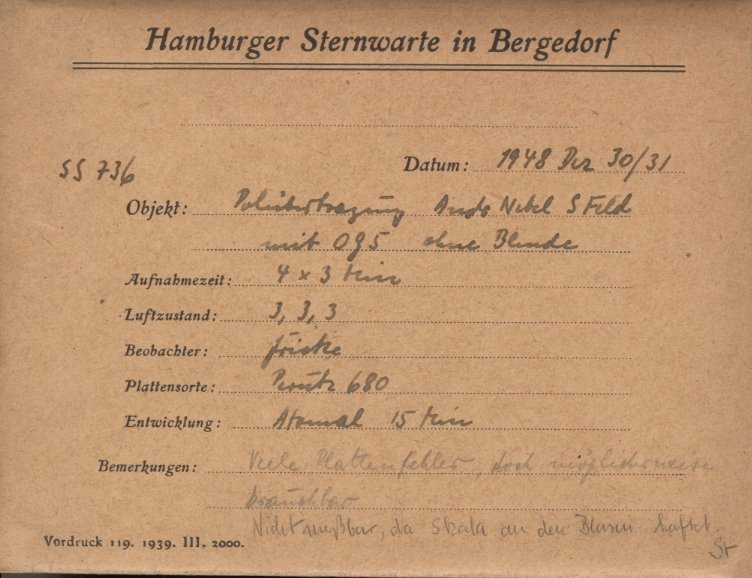 Hamburger Sternwarte in Bergedorf
SS 736
Datum: 1948 Dez 30/31
Objekt: Polübertragung Andr Nebel S Feld
mit OG5 ohne Blende
Aufnahmezeit: 4 x 3 Min
Luftzustand: 3, 3, 3
Beobachter: Fricke
Plattensorte: Perutz 680
Entwicklung: Atomal 15 Min
Bemerkungen: Viele Plattenfehler, doch möglicherweise
brauchbar
Nicht meßbar, da Skala an den haftet.
St
Vordruck 119. 1939. III. 2000.